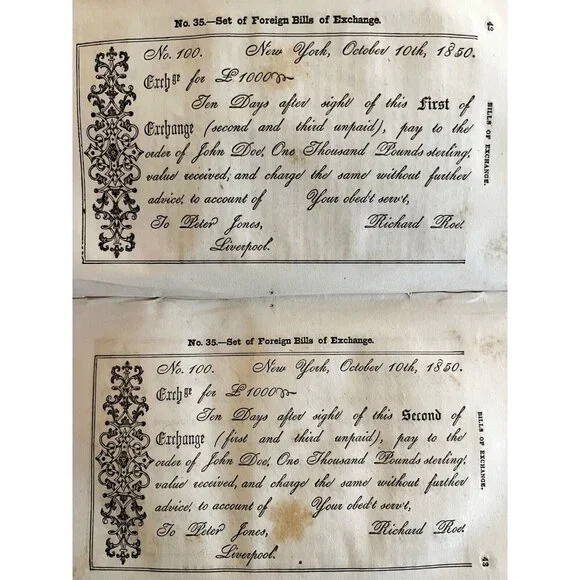 No. 35.—Set of Foreign Bills of Exchange.
No. 100. New York, October 10th, 1850.
Exchge for £1000
Ten Days after sight of this First of
Exchange (second and third unpaid), pay to the
order of John Doe, One Thousand Pounds sterling,
value received, and charge the same without further
advice, to account of Your obed't serv't,
To Peter Jones, Richard Roe.
Liverpool.
42
BILLS OF EXCHANGE.
No. 35.—Set of Foreign Bills of Exchange.
No. 100. New York, October 10th, 1850.
Exchge for £1000
Ten Days after sight of this Second of
Exchange (first and third unpaid), pay to the
order of John Doe, One Thousand Pounds sterling,
value received, and charge the same without further
advice, to account of Your obed't serv't,
To Peter Jones, Richard Roe.
Liverpool.
BILLS OF EXCHANGE.
43